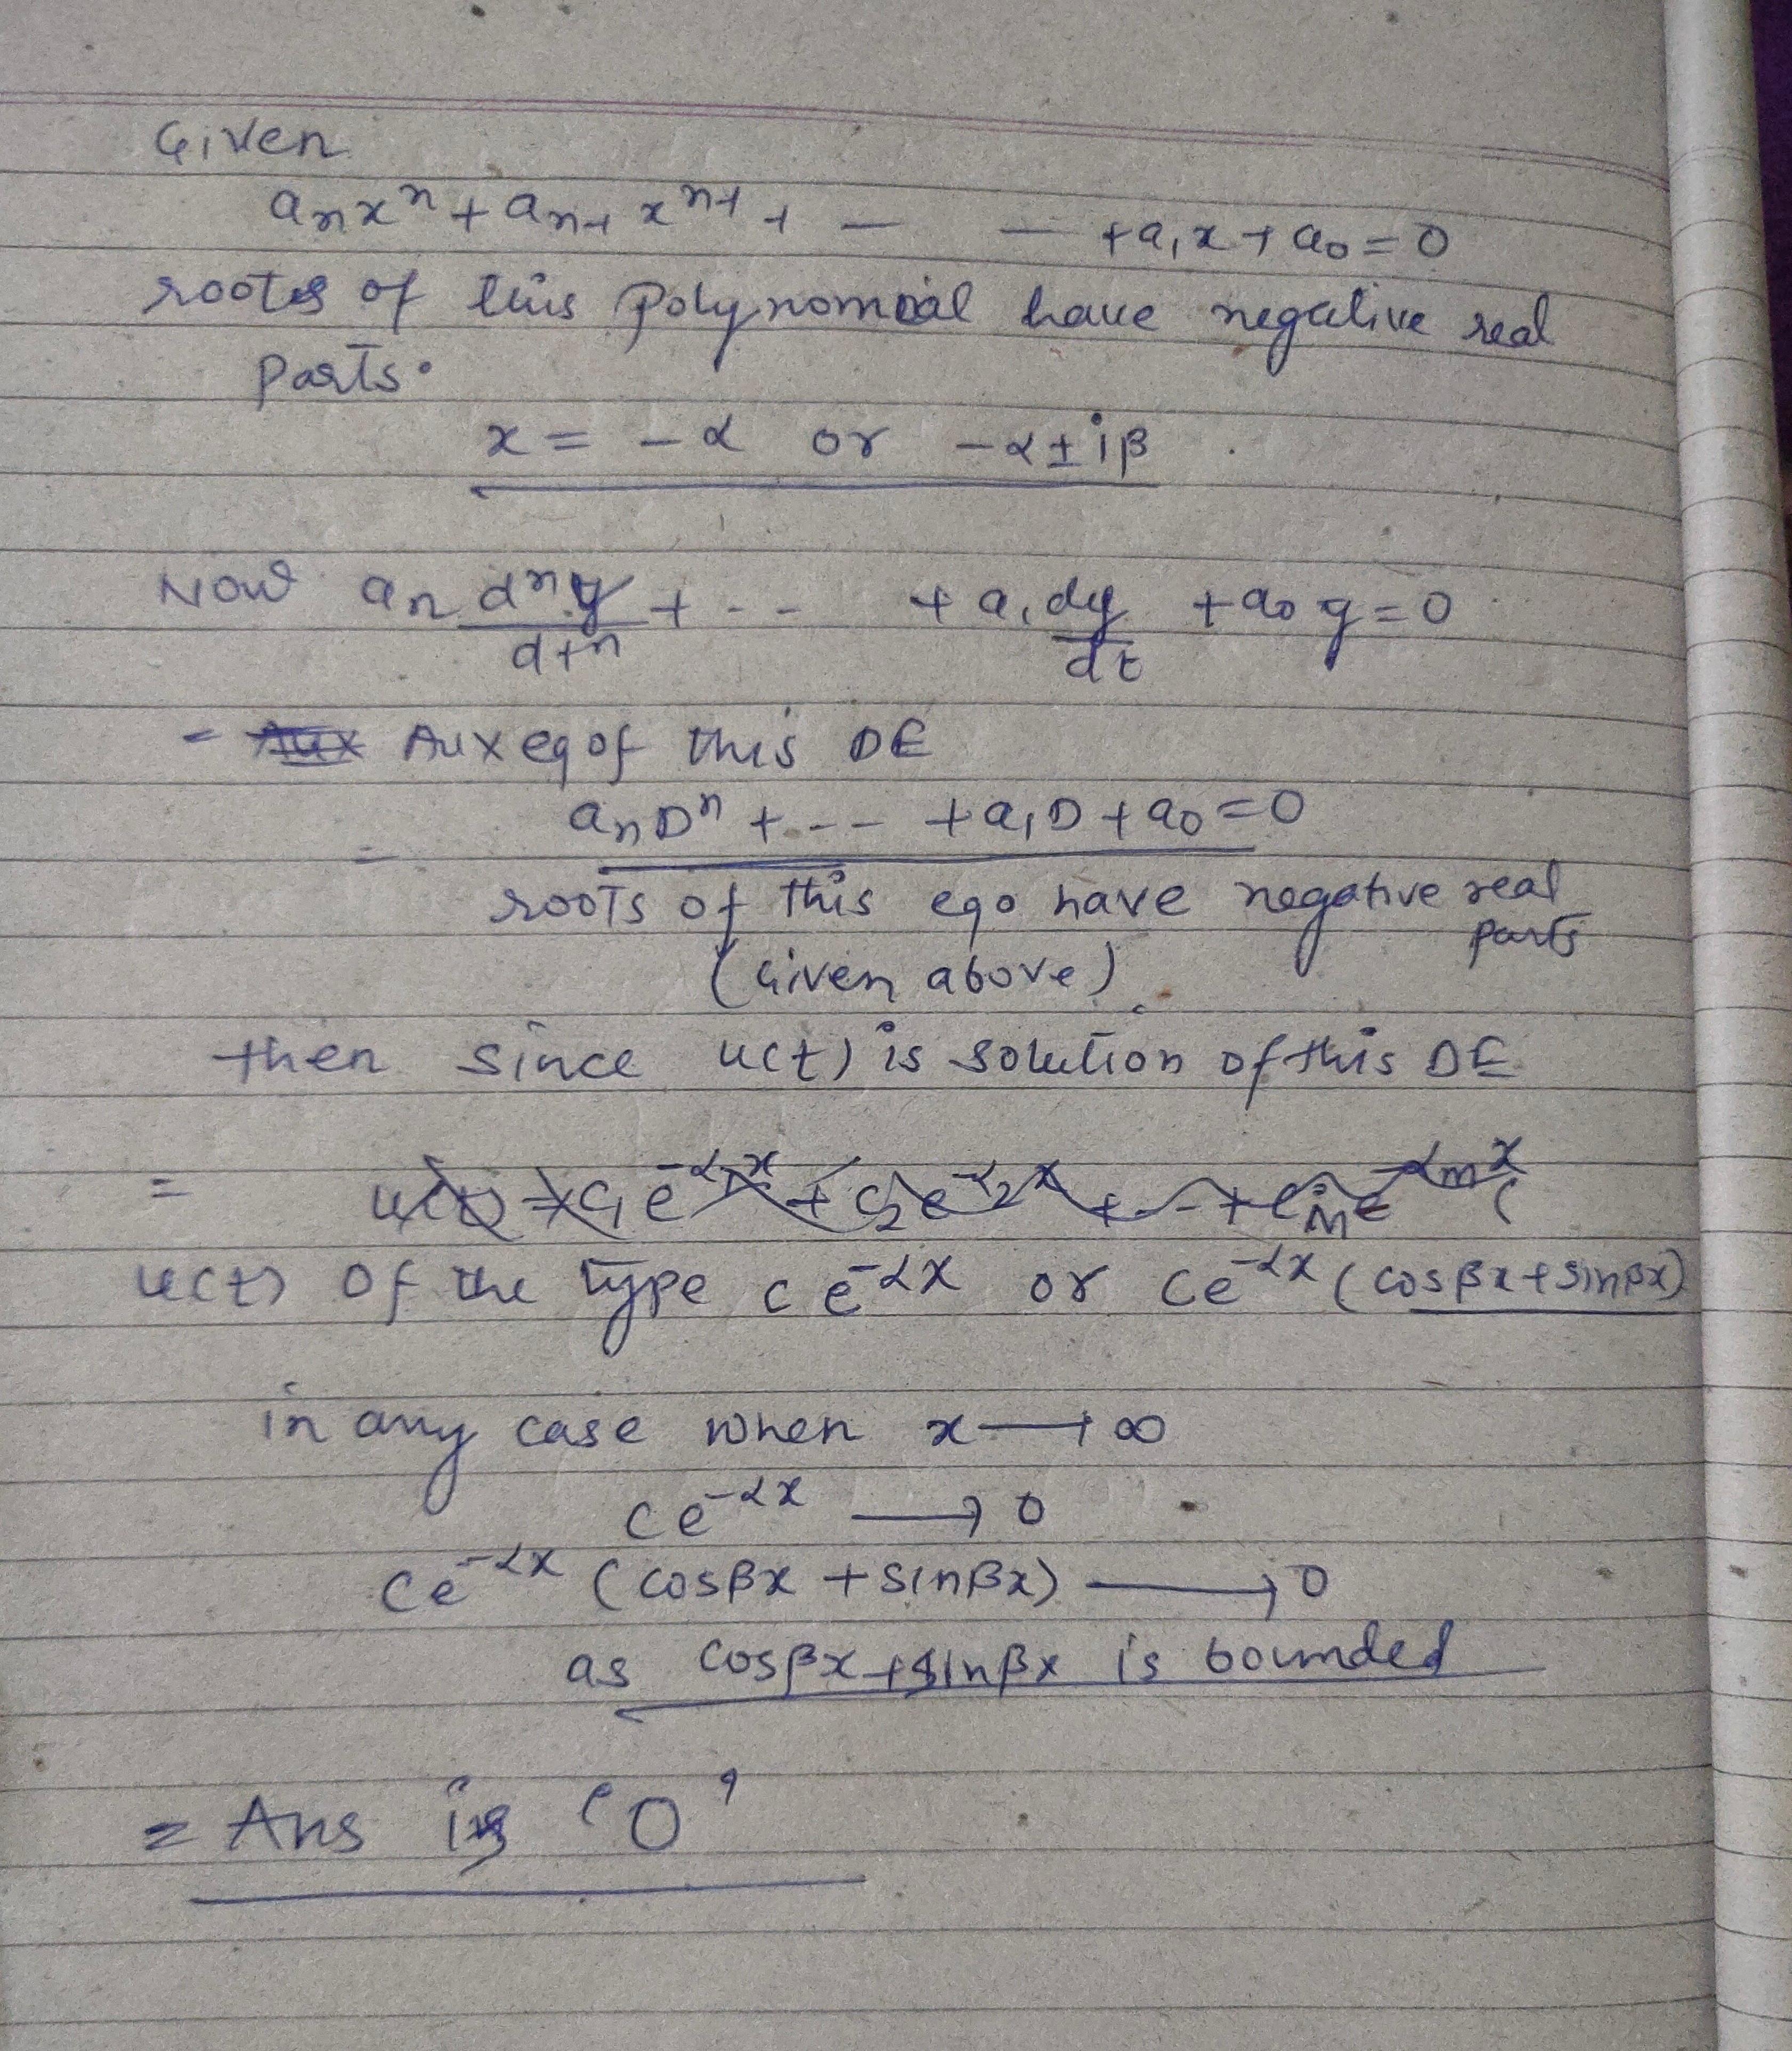 Given
aₙxⁿ + aₙ₋₁ xⁿ⁻¹ + — — + a₁x + a₀ = 0
roots of this Polynomial have negative real
parts.
x = -α or -α ± iβ
Now aₙ dⁿy/dtⁿ + - - + a₁ dy/dt + a₀ y = 0
- Aux Aux eq of this DE
aₙDⁿ + - - - + a₁D + a₀ = 0
= roots of this eqo have negative real
parts
(Given above)
then since u(t) is solution of this DE
=
u(t) Of the type c e^-αx or ce^-αx (cosβx + sinβx)
in any case when x → ∞
ce^-αx → 0
ce^-αx (cosβx + sinβx) → 0
as cosβx + sinβx is bounded
= Ans is '0'